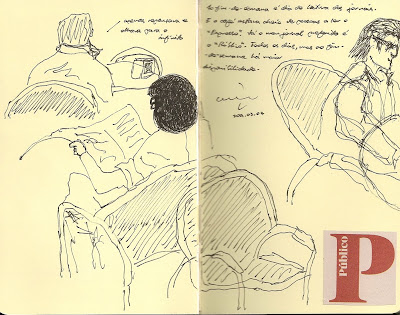 apenas repousava e
olhava para o
infinito
fim-de-semana é dia de leitura dos jornais.
E o café estava cheio de pessoas a ler o
"Expresso". Já o meu jornal preferido é
o "Público". Todos os dias, mas ao fim-
-de-semana há maior
disponibilidade.
Público
P